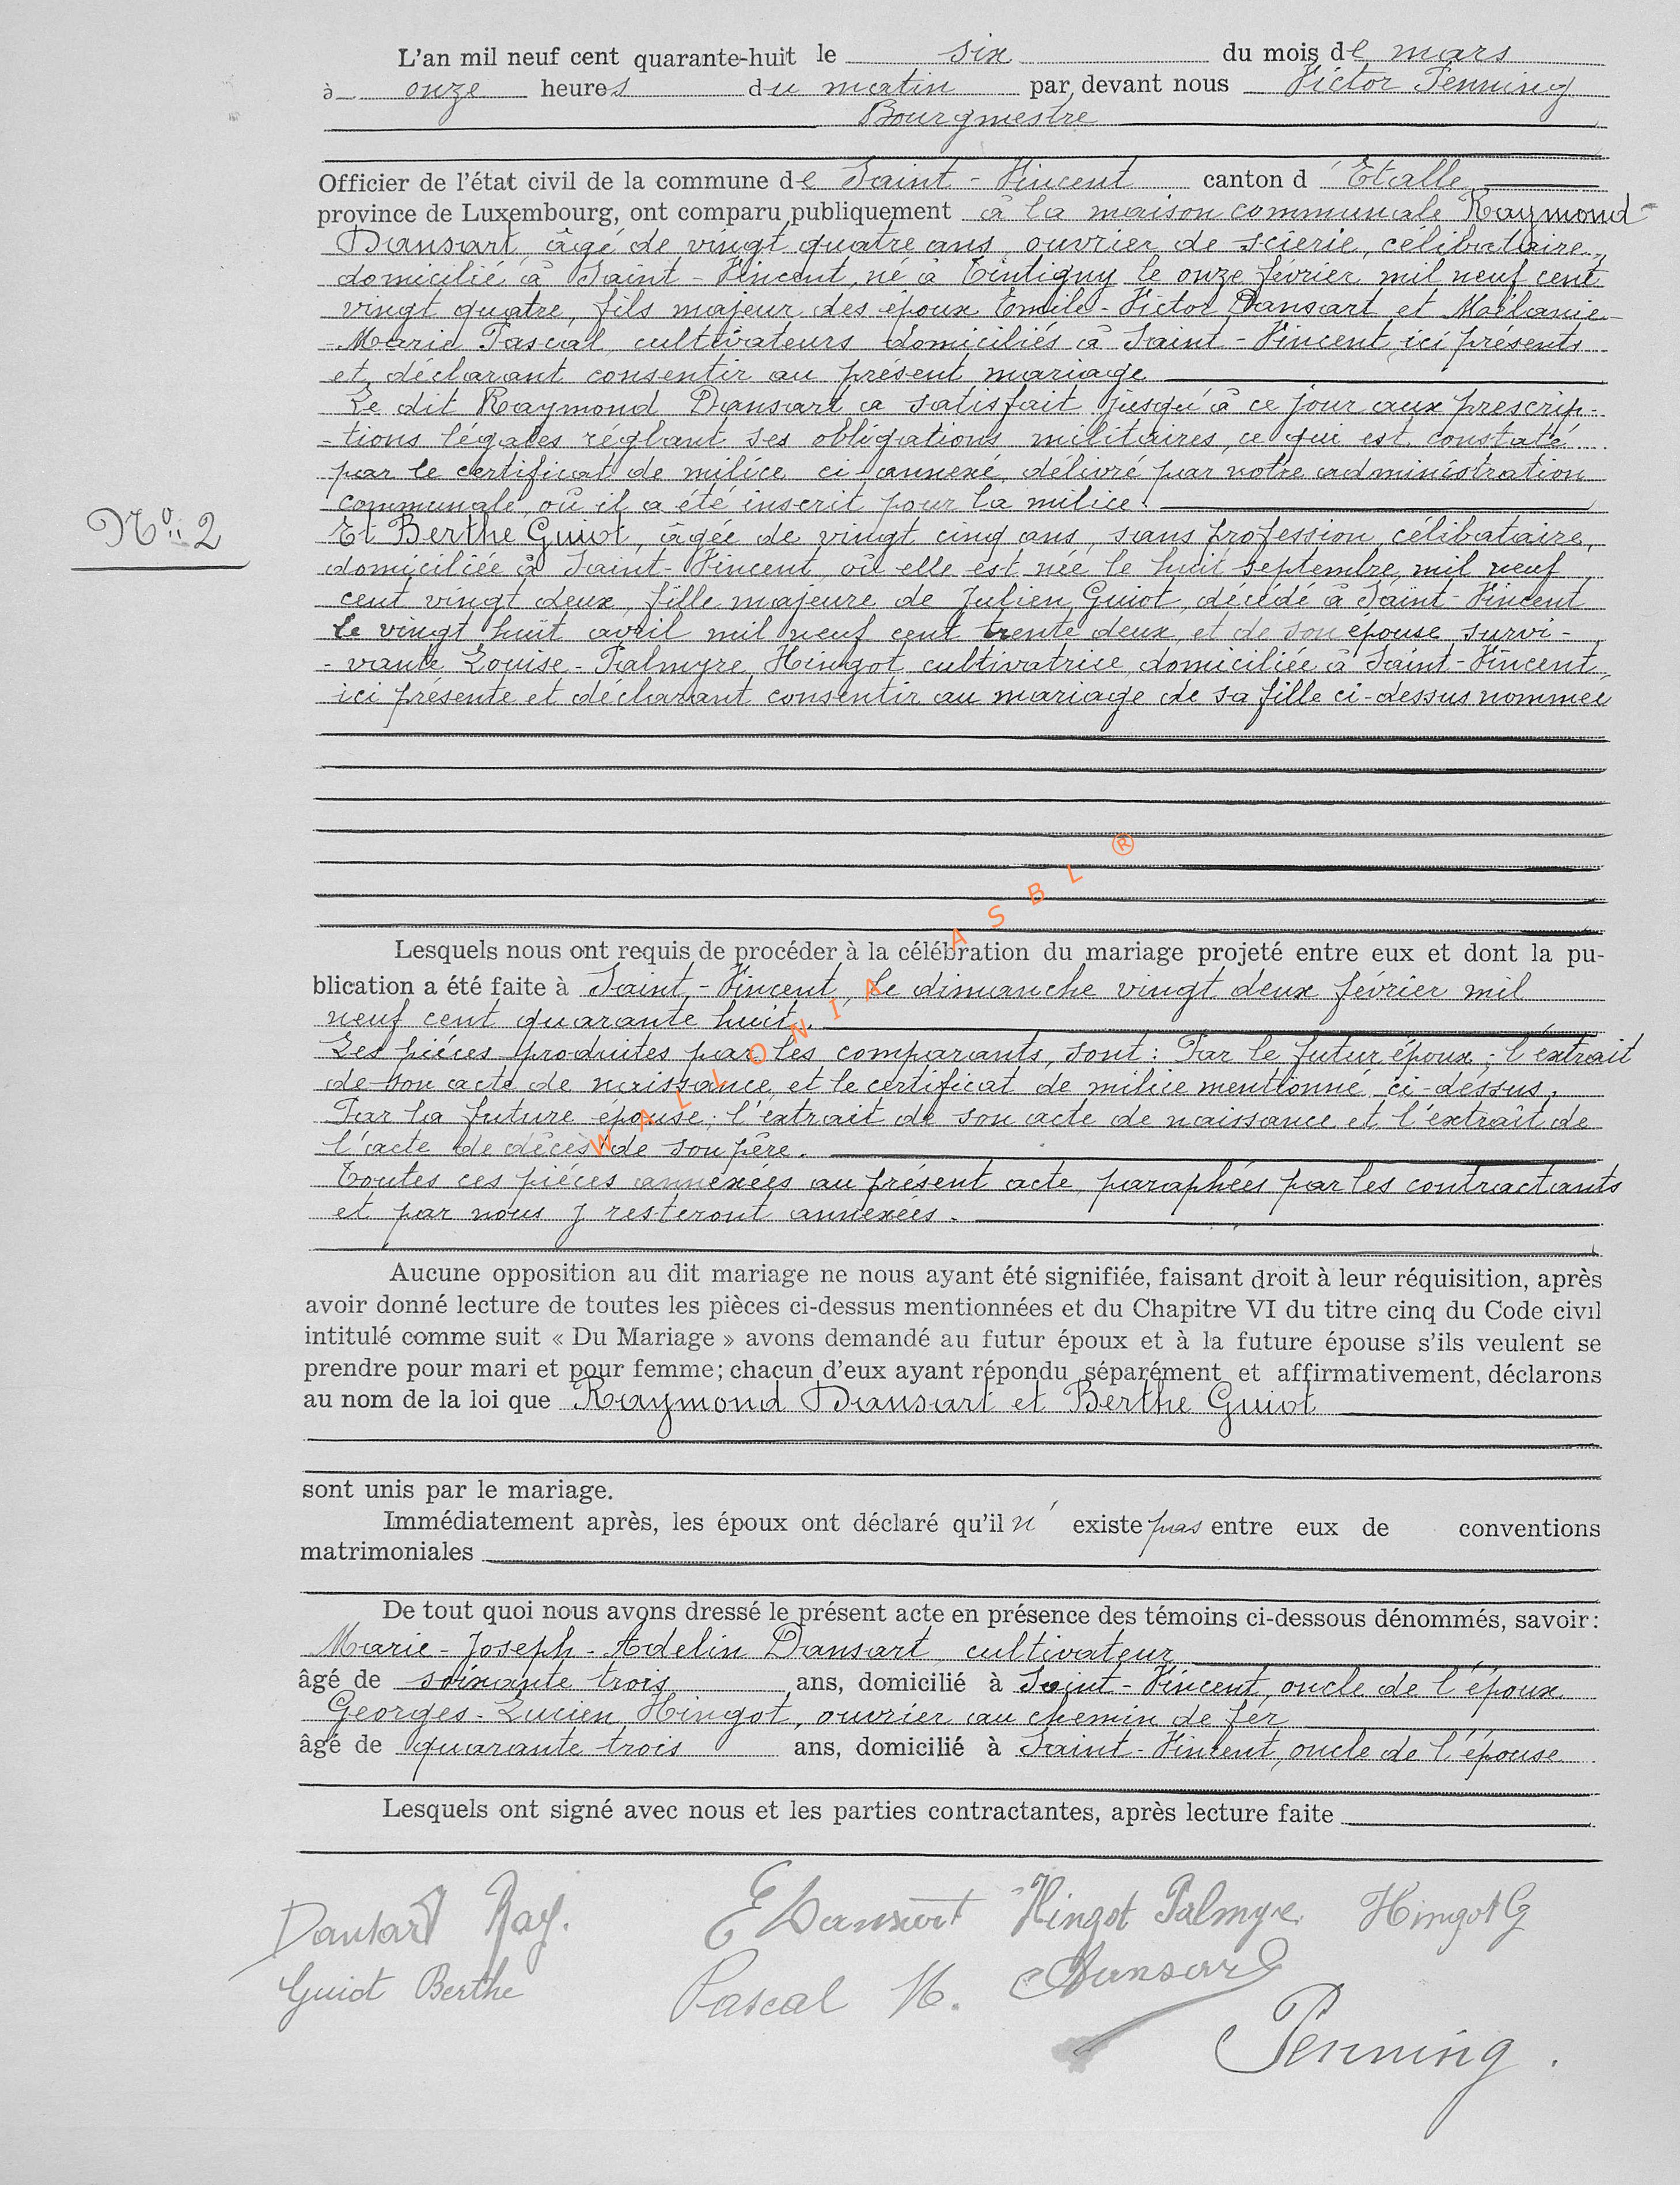 L'an mil neuf cent quarante-huit le six du mois de mars
à onze heures du matin par devant nous Victor Penning
Bourgmestre
Officier de l'état civil de la commune de Saint-Vincent canton d'Etalle
province de Luxembourg, ont comparu publiquement à la maison communale Raymond
Dansart, âgé de vingt quatre ans, ouvrier de scierie, célibataire,
domicilié à Saint-Vincent, né à Tintigny le onze février mil neuf cent
vingt quatre, fils majeur des époux Emile-Victor Dansart et Mélanie-
-Marie Pascal, cultivateurs domiciliés à Saint-Vincent, ici présents
et déclarant consentir au présent mariage
Le dit Raymond Dansart a satisfait jusqu'à ce jour aux prescrip-
-tions légales réglant ses obligations militaires, ce qui est constaté
par le certificat de milice ci-annexé, délivré par notre administration
communale, où il a été inscrit pour la milice.
N° 2
Et Berthe Guiot, âgée de vingt cinq ans, sans profession, célibataire,
domiciliée à Saint-Vincent, où elle est née le huit septembre mil neuf
cent vingt deux, fille majeure de Julien Guiot, décédé à Saint-Vincent
le vingt huit avril mil neuf cent trente deux, et de son épouse survi-
-vante Louise-Palmyre Hingot, cultivatrice, domiciliée à Saint-Vincent,
ici présente et déclarant consentir au mariage de sa fille ci-dessus nommée
Lesquels nous ont requis de procéder à la célébration du mariage projeté entre eux et dont la pu-
blication a été faite à Saint-Vincent, le dimanche vingt deux février mil
neuf cent quarante huit.
Les pièces produites par les comparants, sont: Par le futur époux; l'extrait
de son acte de naissance, et le certificat de milice mentionné ci-dessus,
Par la future épouse; l'extrait de son acte de naissance et l'extrait de
l'acte de décès de son père.
Toutes ces pièces annexées au présent acte, paraphées par les contractants
et par nous y resteront annexées.
WALLONIA ASBL ®
Aucune opposition au dit mariage ne nous ayant été signifiée, faisant droit à leur réquisition, après
avoir donné lecture de toutes les pièces ci-dessus mentionnées et du Chapitre VI du titre cinq du Code civil
intitulé comme suit « Du Mariage » avons demandé au futur époux et à la future épouse s'ils veulent se
prendre pour mari et pour femme; chacun d'eux ayant répondu séparément et affirmativement, déclarons
au nom de la loi que Raymond Dansart et Berthe Guiot
sont unis par le mariage.
Immédiatement après, les époux ont déclaré qu'il n' existe pas entre eux de conventions
matrimoniales
De tout quoi nous avons dressé le présent acte en présence des témoins ci-dessous dénommés, savoir:
Marie-Joseph-Adelin Dansart, cultivateur
âgé de soixante trois ans, domicilié à Saint-Vincent, oncle de l'époux
Georges-Lucien Hingot, ouvrier au chemin de fer
âgé de quarante trois ans, domicilié à Saint-Vincent, oncle de l'épouse
Lesquels ont signé avec nous et les parties contractantes, après lecture faite
Dansart Ray. E Dansart Hingot Palmyre. Hingot G
Guiot Berthe Pascal M. Dansart
Penning.